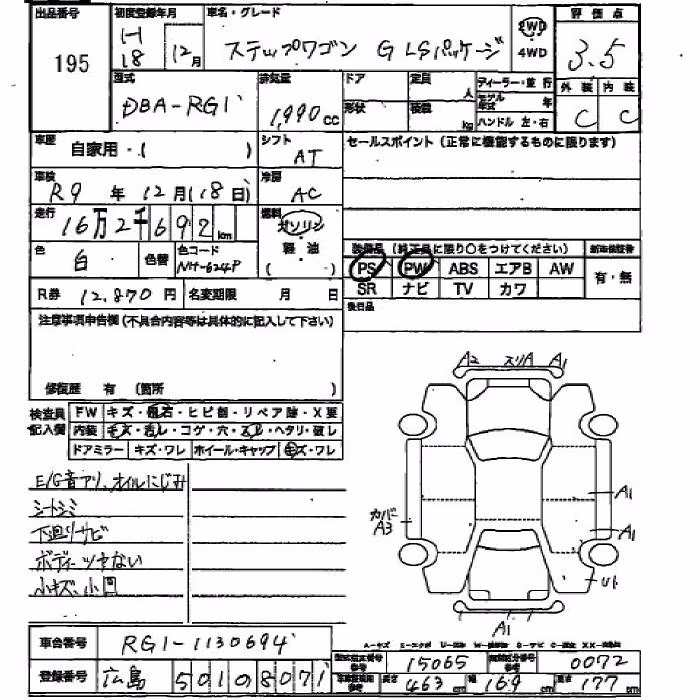 出品番号 初度登録年月 車名・グレード 評価点
195 H18 12月 ステップワゴン G LSパッケージ 2WD 4WD 3.5
型式 排気量 ドア 定員 人 ディーラー・並行 外装 内装
DBA-RG1 1,990cc 形状 積載 kg モデル年式 年 C C
ハンドル 左・右
車歴 自家用・( ) シフト AT セールスポイント(正常に機能するものに限ります)
車検 R9年12月(18日) 冷房 AC
走行 16万2千692km 燃料 ガソリン 軽油 ( )
色 白 色替 色コード NH-624P
装備品(純正品に限り○をつけてください) 新車保証書
PS PW ABS エアB AW 有・無
SR ナビ TV カワ
R券 12,870円 名変期限 月 日 後日品
注意事項申告欄(不具合内容等は具体的に記入して下さい)
修復歴 有 (箇所 )
検査員記入欄 FW キズ・飛石・ヒビ割・リペア跡・X要
内装 キズ・汚レ・コゲ・穴・スレ・ヘタリ・破レ
ドアミラー キズ・ワレ ホイール・キャップ キズ・ワレ
A2 スリA A1
E/G音アリ、オイルにじみ
シートシミ
下廻りサビ
ボディーツヤない
小キズ、小凹
カバー A3
A1
A1
U1
A1
車台番号 RG1-1130694
型式指定番号 15065 類別区分番号 0072
登録番号 広島 501 0 8071
長さ 463cm 幅 169cm 高さ 177cm